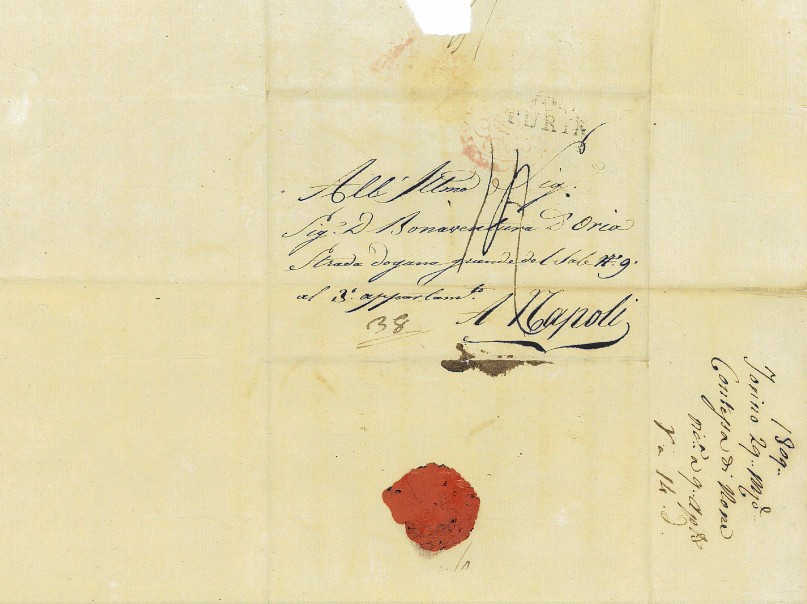 TURIN
All' Illmo Sig.
Sig.r D. Bonaventura D'Orio
Strada dogana grande del Sale N.o 9.
al 3.o appartam.to
A Napoli
38
1809.
Torino 29. M
Contessa di None
a 9. Ap
a 14.